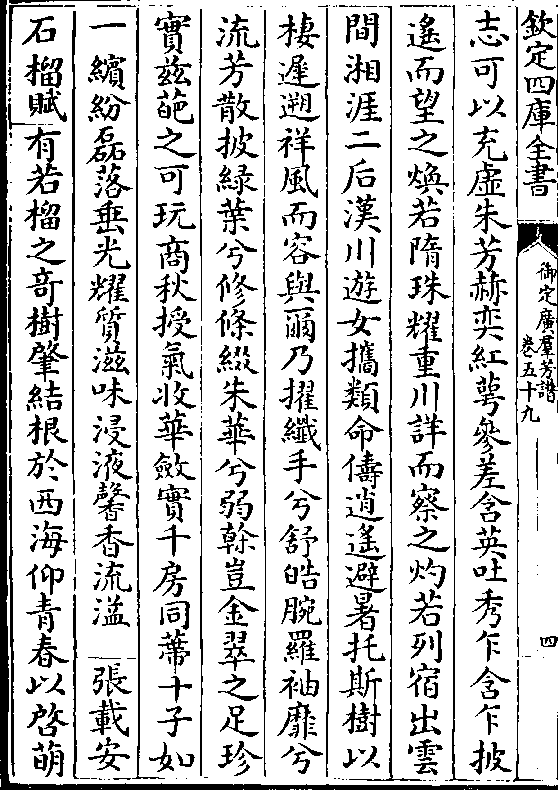 欽定四庫全書
御定廣羣芳譜
卷五十九
四
志可以充虛朱芳赫奕紅蕚參差含英吐秀乍含乍披
遙而望之煥若隋珠耀重川詳而察之灼若列宿出雲
間湘涯二后漢川遊女攜類命儔逍遙避暑托斯樹以
棲遲遡祥風而容與爾乃擢纎手兮舒皓腕羅袖靡兮
流芳散披緑葉兮修條綴朱華兮弱榦豈金翠之足珍
實兹葩之可玩商秋授氣收華斂實千房同蔕十子如
一繽紛磊落垂光耀質滋味浸液馨香流溢 張載安
石榴賦有若榴之奇樹肇結根於西海仰青春以啓萌